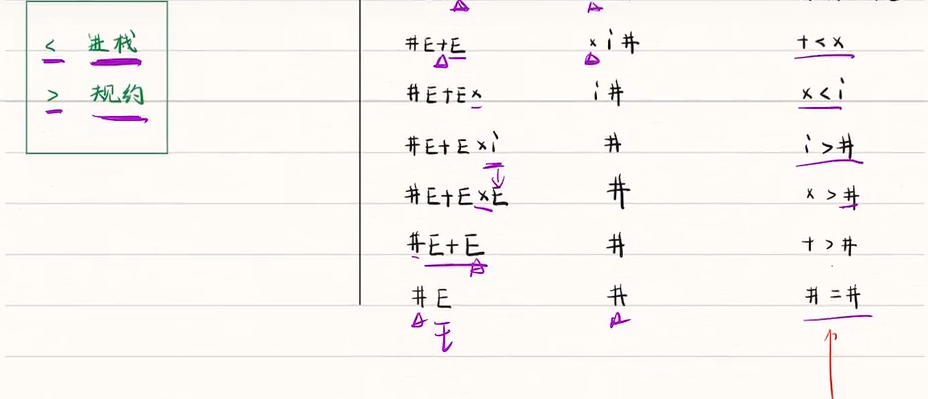 < 进栈
> 规约
#E+E ×i# +<×
#E+E× i# ×<i
#E+E×i # i>#
#E+E×E # ×>#
#E+E # +>#
#E # #=#
E